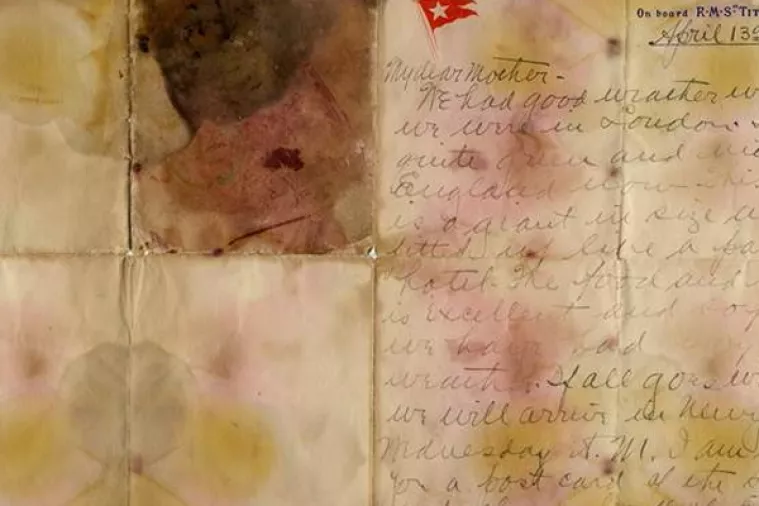 On board R·M·S "TIT
April 13
My dear Mother -
We had good weather w
we were in London.
quite green and nic
England now - This
is a giant in size a
fitted up like a pa
hotel. The food and
is excellent and
we have had
weather. If all goes w
we will arrive in New
Wednesday A.M. I am
for a post card of the s